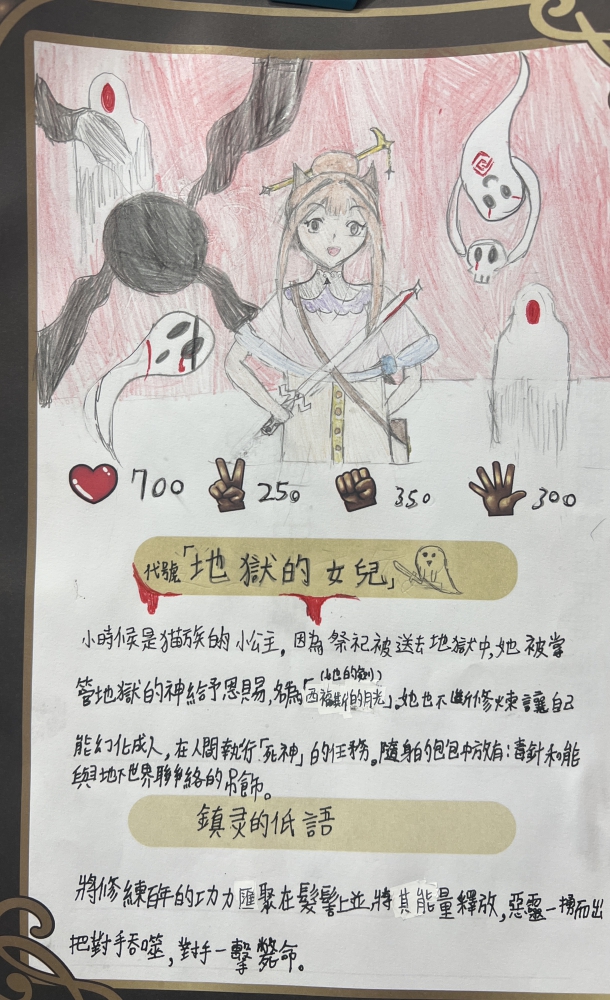 700 250 350 300
代號「地獄的女兒」
小時候是猫族的小公主，因為祭祀被送去地獄中，她被掌
(她的劍)
管地獄的神給予恩賜，名為「西福斯的月老」。她也不斷修煉讓自己
能幻化成人，在人間執行「死神」的任務。隨身的包包中放有：毒針和能
與地下世界聯絡的吊飾。
鎮灵的低語
將修練百年的功力匯聚在髮髻上並將其能量釋放，惡靈一擁而出
把對手吞噬，對手一擊斃命。